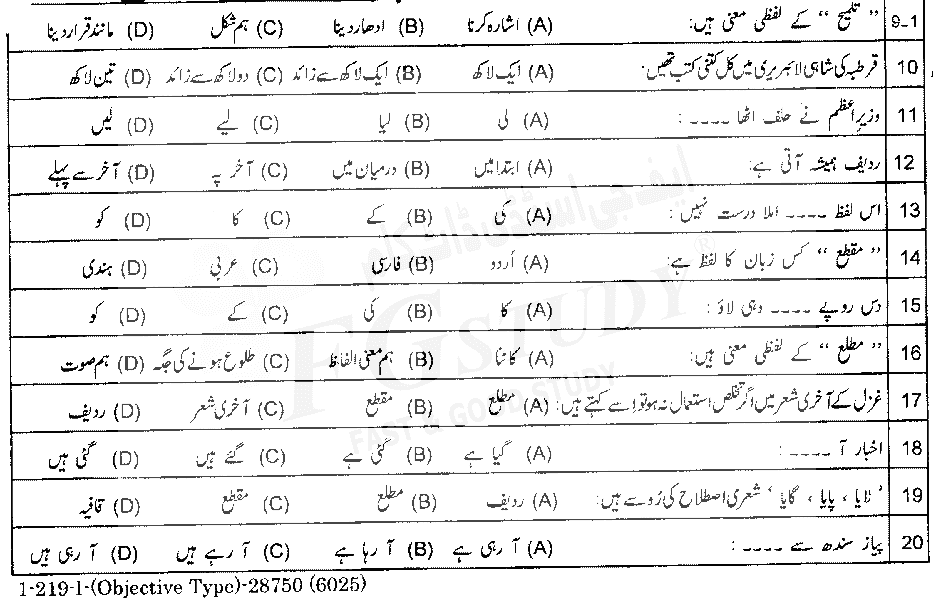 9-1 " تلمیح " کے لفظی معنی ہیں: (A) اشارہ کرنا (B) ادھار دینا (C) ہم شکل (D) مانند قرار دینا
10 قرطبہ کی شاہی لائبریری میں کل کتنی کتب تھیں: (A) ایک لاکھ (B) ایک لاکھ سے زائد (C) دو لاکھ سے زائد (D) تین لاکھ
11 وزیرِاعظم نے حلف اٹھا ۔۔۔۔ : (A) لی (B) لیا (C) لیے (D) لیں
12 ردیف ہمیشہ آتی ہے: (A) ابتدا میں (B) درمیان میں (C) آخر پہ (D) آخر سے پہلے
13 اس لفظ ۔۔۔۔ املا درست نہیں: (A) کی (B) کے (C) کا (D) کو
14 " مقطع " کس زبان کا لفظ ہے: (A) اُردو (B) فارسی (C) عربی (D) ہندی
15 دس روپے ۔۔۔۔ دہی لاؤ : (A) کا (B) کی (C) کے (D) کو
16 " مطلع " کے لفظی معنی ہیں: (A) کاٹنا (B) ہم معنی الفاظ (C) طلوع ہونے کی جگہ (D) ہم صوت
17 غزل کے آخری شعر میں اگر تخلص استعمال نہ ہو تو اسے کہتے ہیں: (A) مطلع (B) مقطع (C) آخری شعر (D) ردیف
18 اخبار آ ۔۔۔۔ : (A) گیا ہے (B) گئی ہے (C) گئے ہیں (D) گئی ہیں
19 ' لایا ، پایا ، گایا ' شعری اصطلاح کی رُو سے ہیں: (A) ردیف (B) مطلع (C) مقطع (D) قافیہ
20 پیاز سندھ سے ۔۔۔۔ : (A) آ رہی ہے (B) آ رہا ہے (C) آ رہے ہیں (D) آ رہی ہیں
1-219-1-(Objective Type)-28750 (6025)
ایف جی اسٹڈی ڈاٹ کام
FG STUDY ®
FAST & GOOD STUDY